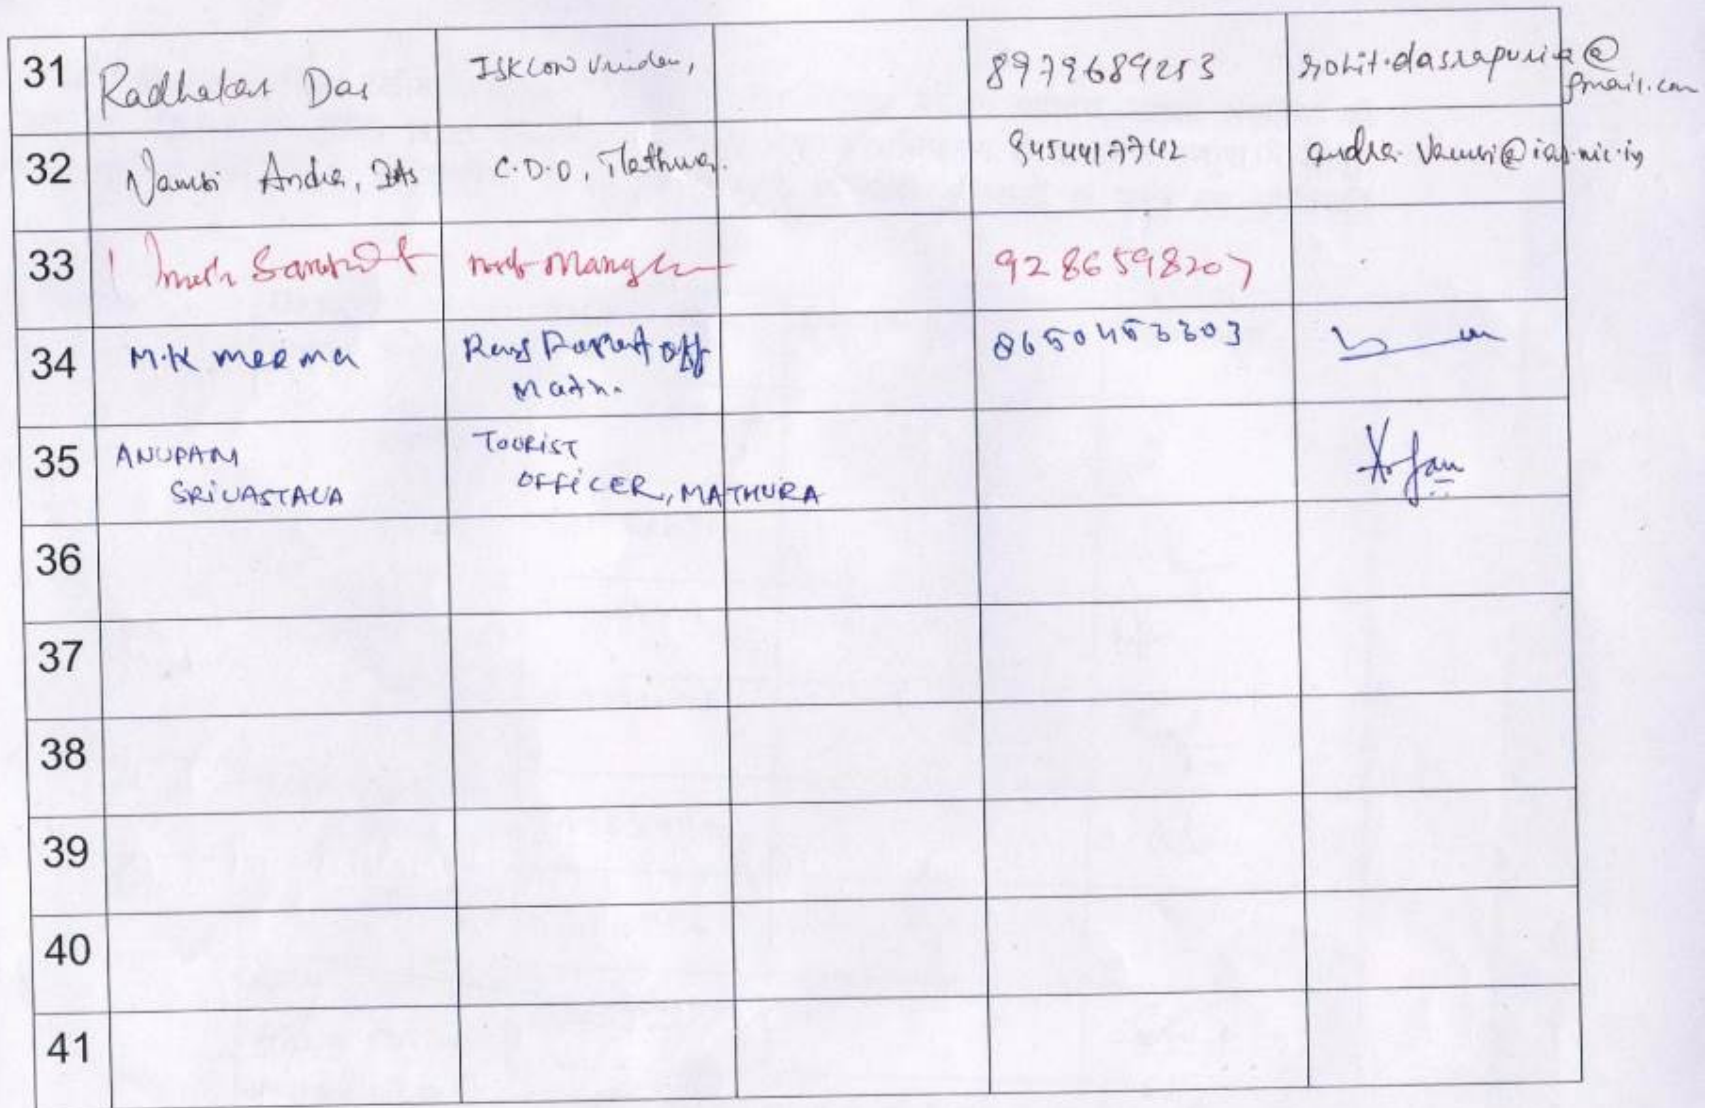 31 Radhakant Das ISKCON Vrindavan, 8979689253 rohit.dasrapuria@
gmail.com
32 Vamsi Andra, IAS C.D.O, Mathura. 9454417742 andra.vamsi@ias.nic.in
33 9286598207
34 M.K meena 8650453303
35 ANUPAM TOURIST
SRIVASTAVA OFFICER, MATHURA
36
37
38
39
40
41